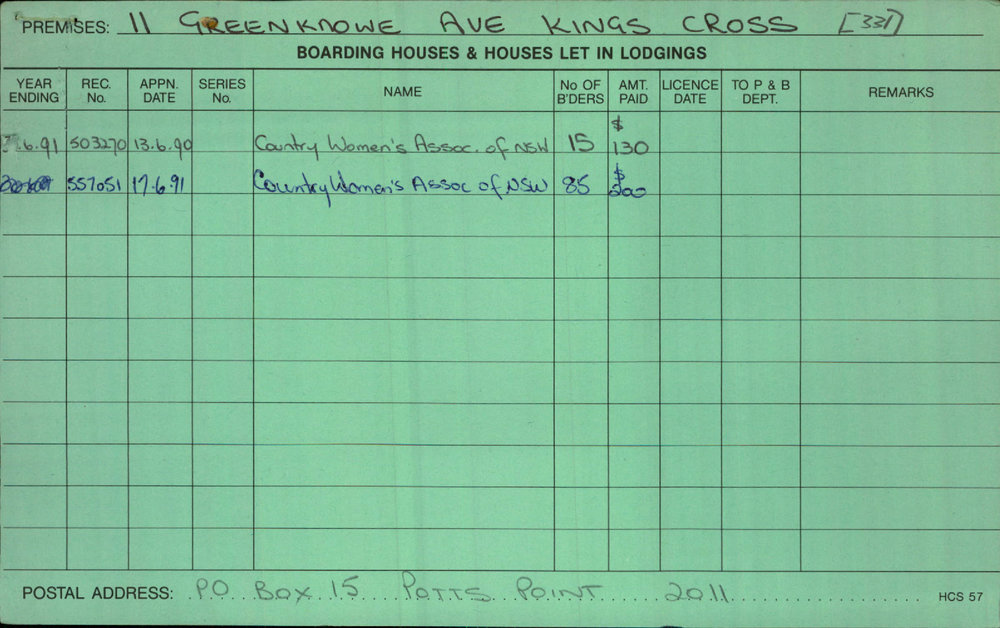 PREMISES: 11 GREENKNOWE AVE KINGS CROSS [331]
BOARDING HOUSES & HOUSES LET IN LODGINGS
YEAR ENDING REC. No. APPN. DATE SERIES No. NAME No OF B'DERS AMT. PAID LICENCE DATE TO P & B DEPT. REMARKS
6.91 503270 13.6.90 Country Women's Assoc. of NSW 15 $130
557051 17.6.91 Country Women's Assoc of NSW 85 $200
POSTAL ADDRESS: P.O. Box 15 POTTS POINT 2011 HCS 57